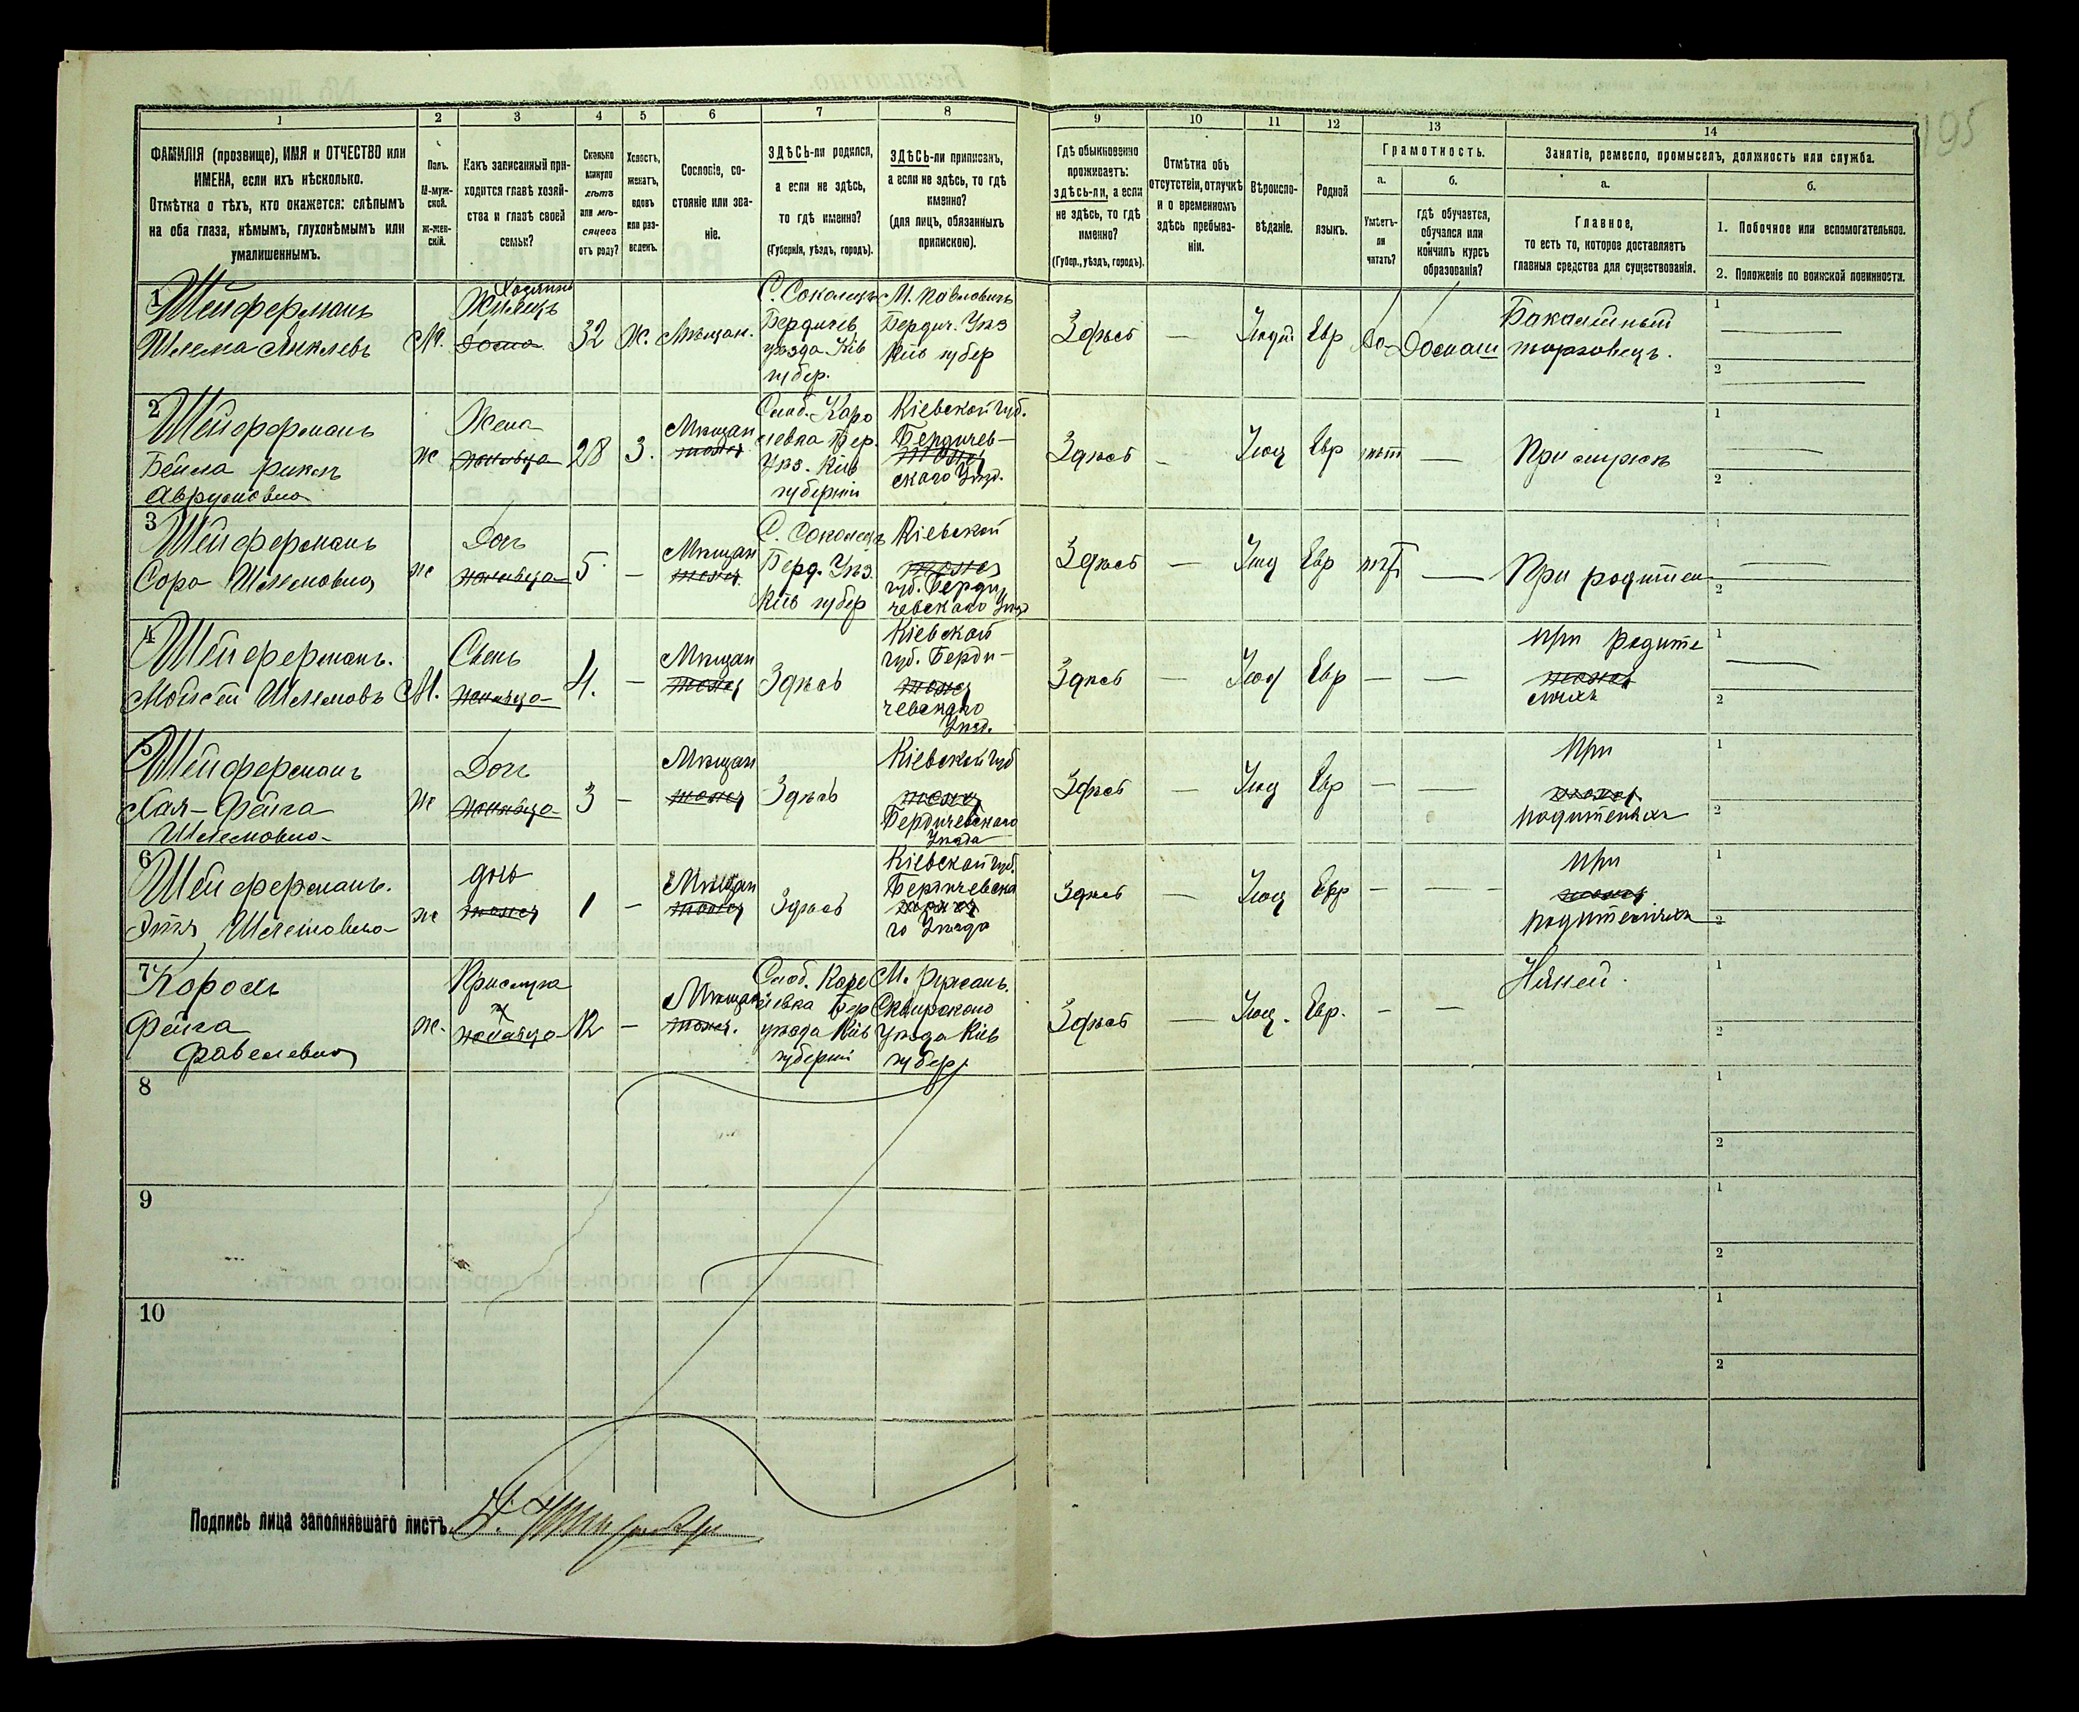 195
1 2 3 4 5 6 7 8 9 10 11 12 13 14
ФАМИЛІЯ (прозвище), ИМЯ и ОТЧЕСТВО или
ИМЕНА, если ихъ нѣсколько.
Отмѣтка о тѣхъ, кто окажется: слѣпымъ
на оба глаза, нѣмымъ, глухонѣмымъ или
умалишеннымъ.
Полъ.
М-муж-
ской.
ж-жен-
скій.
Какъ записанный при-
ходится главѣ хозяй-
ства и главѣ своей
семьи?
Сколько
минуло
лѣтъ
или мѣ-
сяцевъ
отъ роду?
Холостъ,
женатъ,
вдовъ
или раз-
веденъ.
Сословіе, со-
стояніе или зва-
ніе.
ЗДѢСЬ-ли родился,
а если не здѣсь,
то гдѣ именно?
(Губернія, уѣздъ, городъ).
ЗДѢСЬ-ли приписанъ,
а если не здѣсь, то гдѣ
именно?
(для лицъ, обязанныхъ
припискою).
Гдѣ обыкновенно
проживаетъ:
здѣсь-ли, а если
не здѣсь, то гдѣ
именно?
(Губер., уѣздъ, городъ).
Отмѣтка объ
отсутствіи, отлучкѣ
и о временномъ
здѣсь пребыва-
ніи.
Вѣроиспо-
вѣданіе.
Родной
языкъ.
Грамотность.
а.
Умѣетъ-
ли
читать?
б.
гдѣ обучается,
обучался или
кончилъ курсъ
образованія?
Занятіе, ремесло, промыселъ, должность или служба.
а.
Главное,
то есть то, которое доставляетъ
главныя средства для существованія.
б.
1. Побочное или вспомогательное.
2. Положеніе по воинской повинности.
1
Шейферманъ
Шлема Янклевъ
М.
Хозяинъ
32
Ж.
Мѣщан.
С. Соколецъ
Бердичев
уѣзда Кіев
губер.
М. Паволочь
Бердич. Уѣз
Кіев губер
Здѣсь
—
Іюдей
Евр
Да
Домаш
Бакалейный
торговецъ.
1
2
2
Шейферманъ
Бейла Рикль
Аврумовна
ж
Жена
28
З.
Мѣщан
Слоб. Каро
левка Бер.
Уѣз. Кіев
губерніи
Кіевской губ.
Бердичев-
скаго Уѣзд.
Здѣсь
—
Іюд
Евр
нѣт
—
При мужѣ
1
2
3
Шейферманъ
Сора Шлемовна
ж
Дочь
5
—
Мѣщан
С. Соколецъ
Берд. Уѣз.
Кіев губер
Кіевской
губ. Берди
чевскаго Уѣзд
Здѣсь
—
Іюд
Евр
нѣт
—
При родител
1
2
4
Шейферманъ.
Мойсей Шлемовъ
М.
Сынъ
4.
—
Мѣщан
Здѣсь
Кіевской
губ. Берди-
чевскаго
Уѣзд.
Здѣсь
—
Іюд
Евр
—
—
при родите
ляхъ
1
2
5
Шейферманъ
Хая-Фейга
Шлемовна
ж
Дочь
3
—
Мѣщан
Здѣсь
Кіевской губ
Бердичевскаго
Уѣзда
Здѣсь
—
Іюд
Евр
—
—
При
родителяхъ
1
2
6
Шейферманъ.
Этя Шлемовна
ж
дочь
1
—
Мѣщан
Здѣсь
Кіевской губ.
Бердичевска
го Уѣзда
Здѣсь
—
Іюд
Евр
—
—
При
родителяхъ
1
2
7
Король
Фейга
ж.
Прислуга
12
—
Мѣщан
Слоб. Каро
левка Бер
уѣзда Кіев
губерніи
М. Ружинъ.
Сквирскаго
Уѣзда Кіев
губер.
Здѣсь
—
Іюд.
Евр.
—
—
Няней.
1
2
8
1
2
9
1
2
10
1
2
Подпись лица заполнявшаго листъ